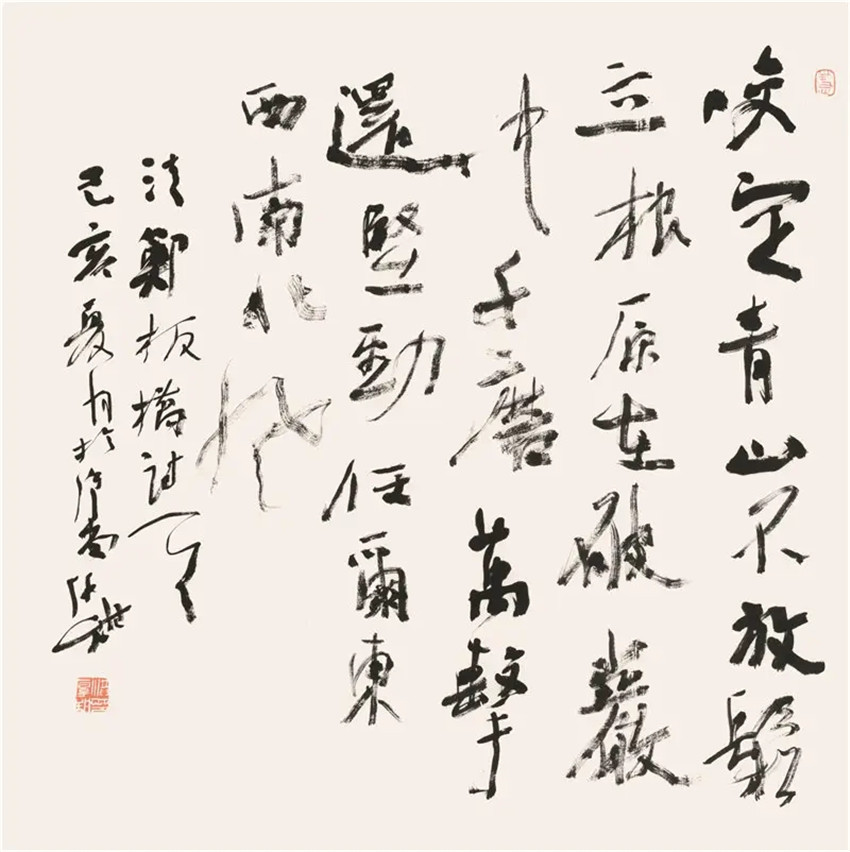 咬定青山不放鬆
立根原在破巖
中千磨萬擊
還堅勁任爾東
西南北風
清鄭板橋詩一首
己亥夏月於